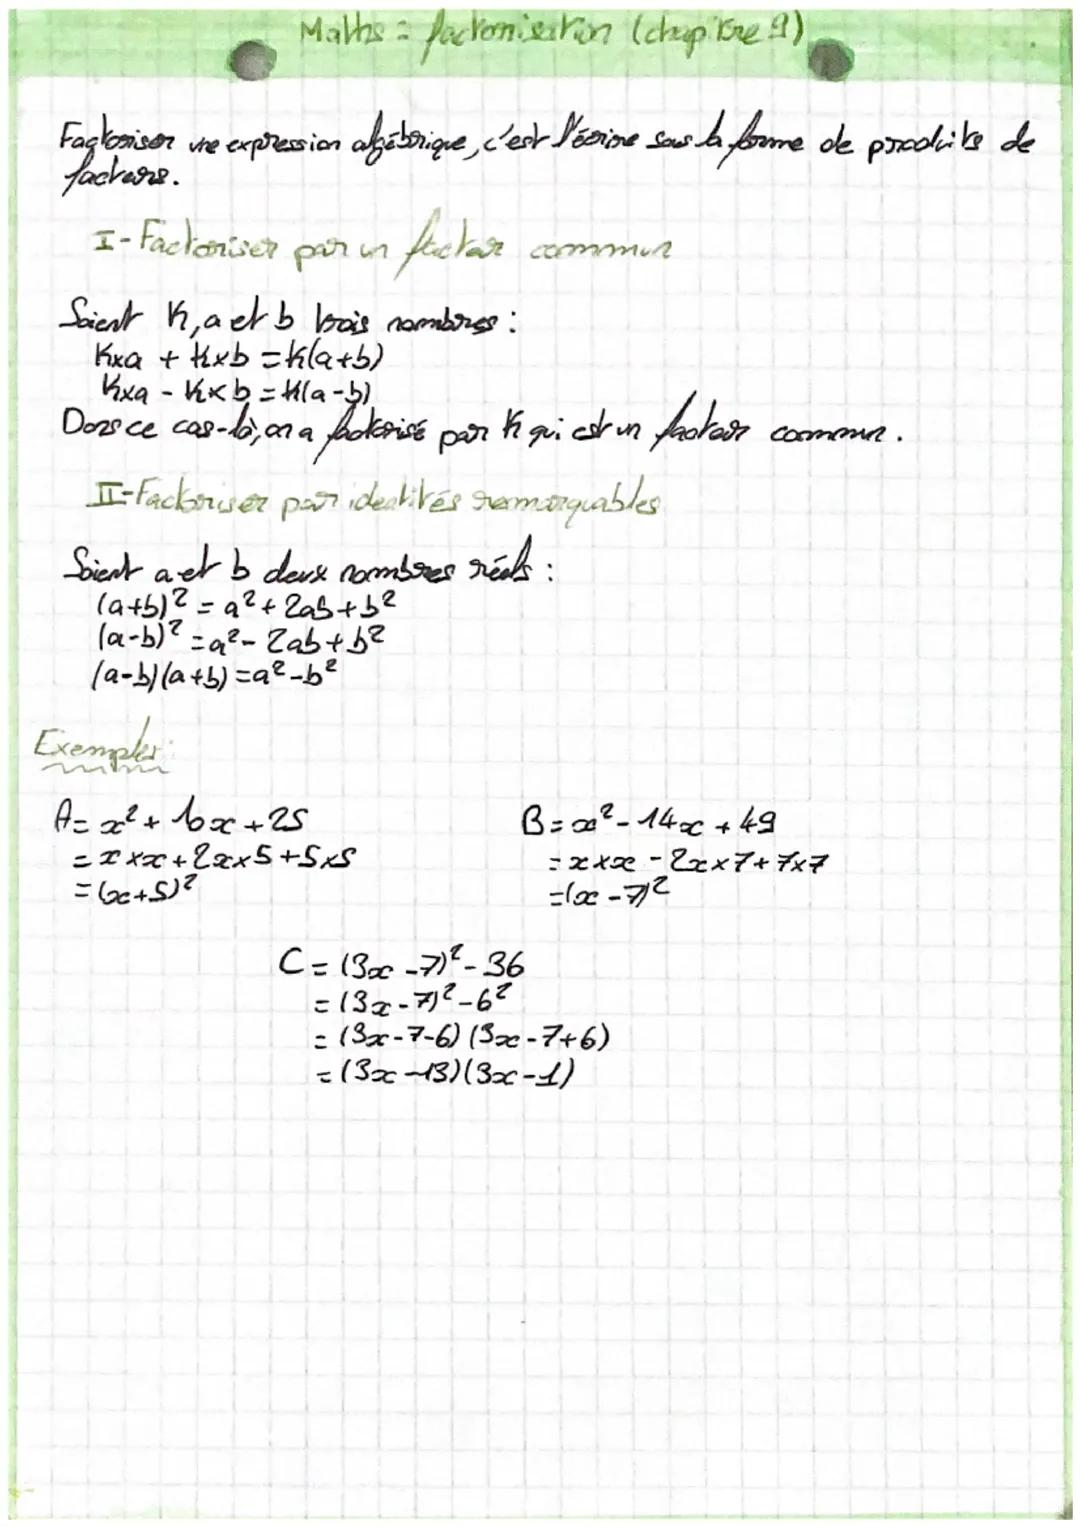 Maths : factorisation (chapitre 9)
Factoriser une expression algébrique, c'est l'écrire sous la forme de produits de
facteurs.
I-Factoriser par un facteur commun
Soient K, a et b trois nombres :
K×a + K×b = K(a+b)
K×a - K×b = K(a-b)
Dans ce cas-là, on a factorisé par K qui est un facteur commun.
II-Factoriser par identités remarquables
Soient a et b deux nombres réels :
(a+b)² = a² + 2ab + b²
(a-b)² = a² - 2ab + b²
(a-b)(a+b) = a² - b²
Exemples :
A = x² + 10x + 25
= x×x + 2x×5 + 5×5
= (x+5)²
B = x² - 14x + 49
= x×x - 2x×7 + 7×7
= (x-7)²
C = (3x-7)² - 36
= (3x-7)² - 6²
= (3x-7-6)(3x-7+6)
= (3x-13)(3x-1)